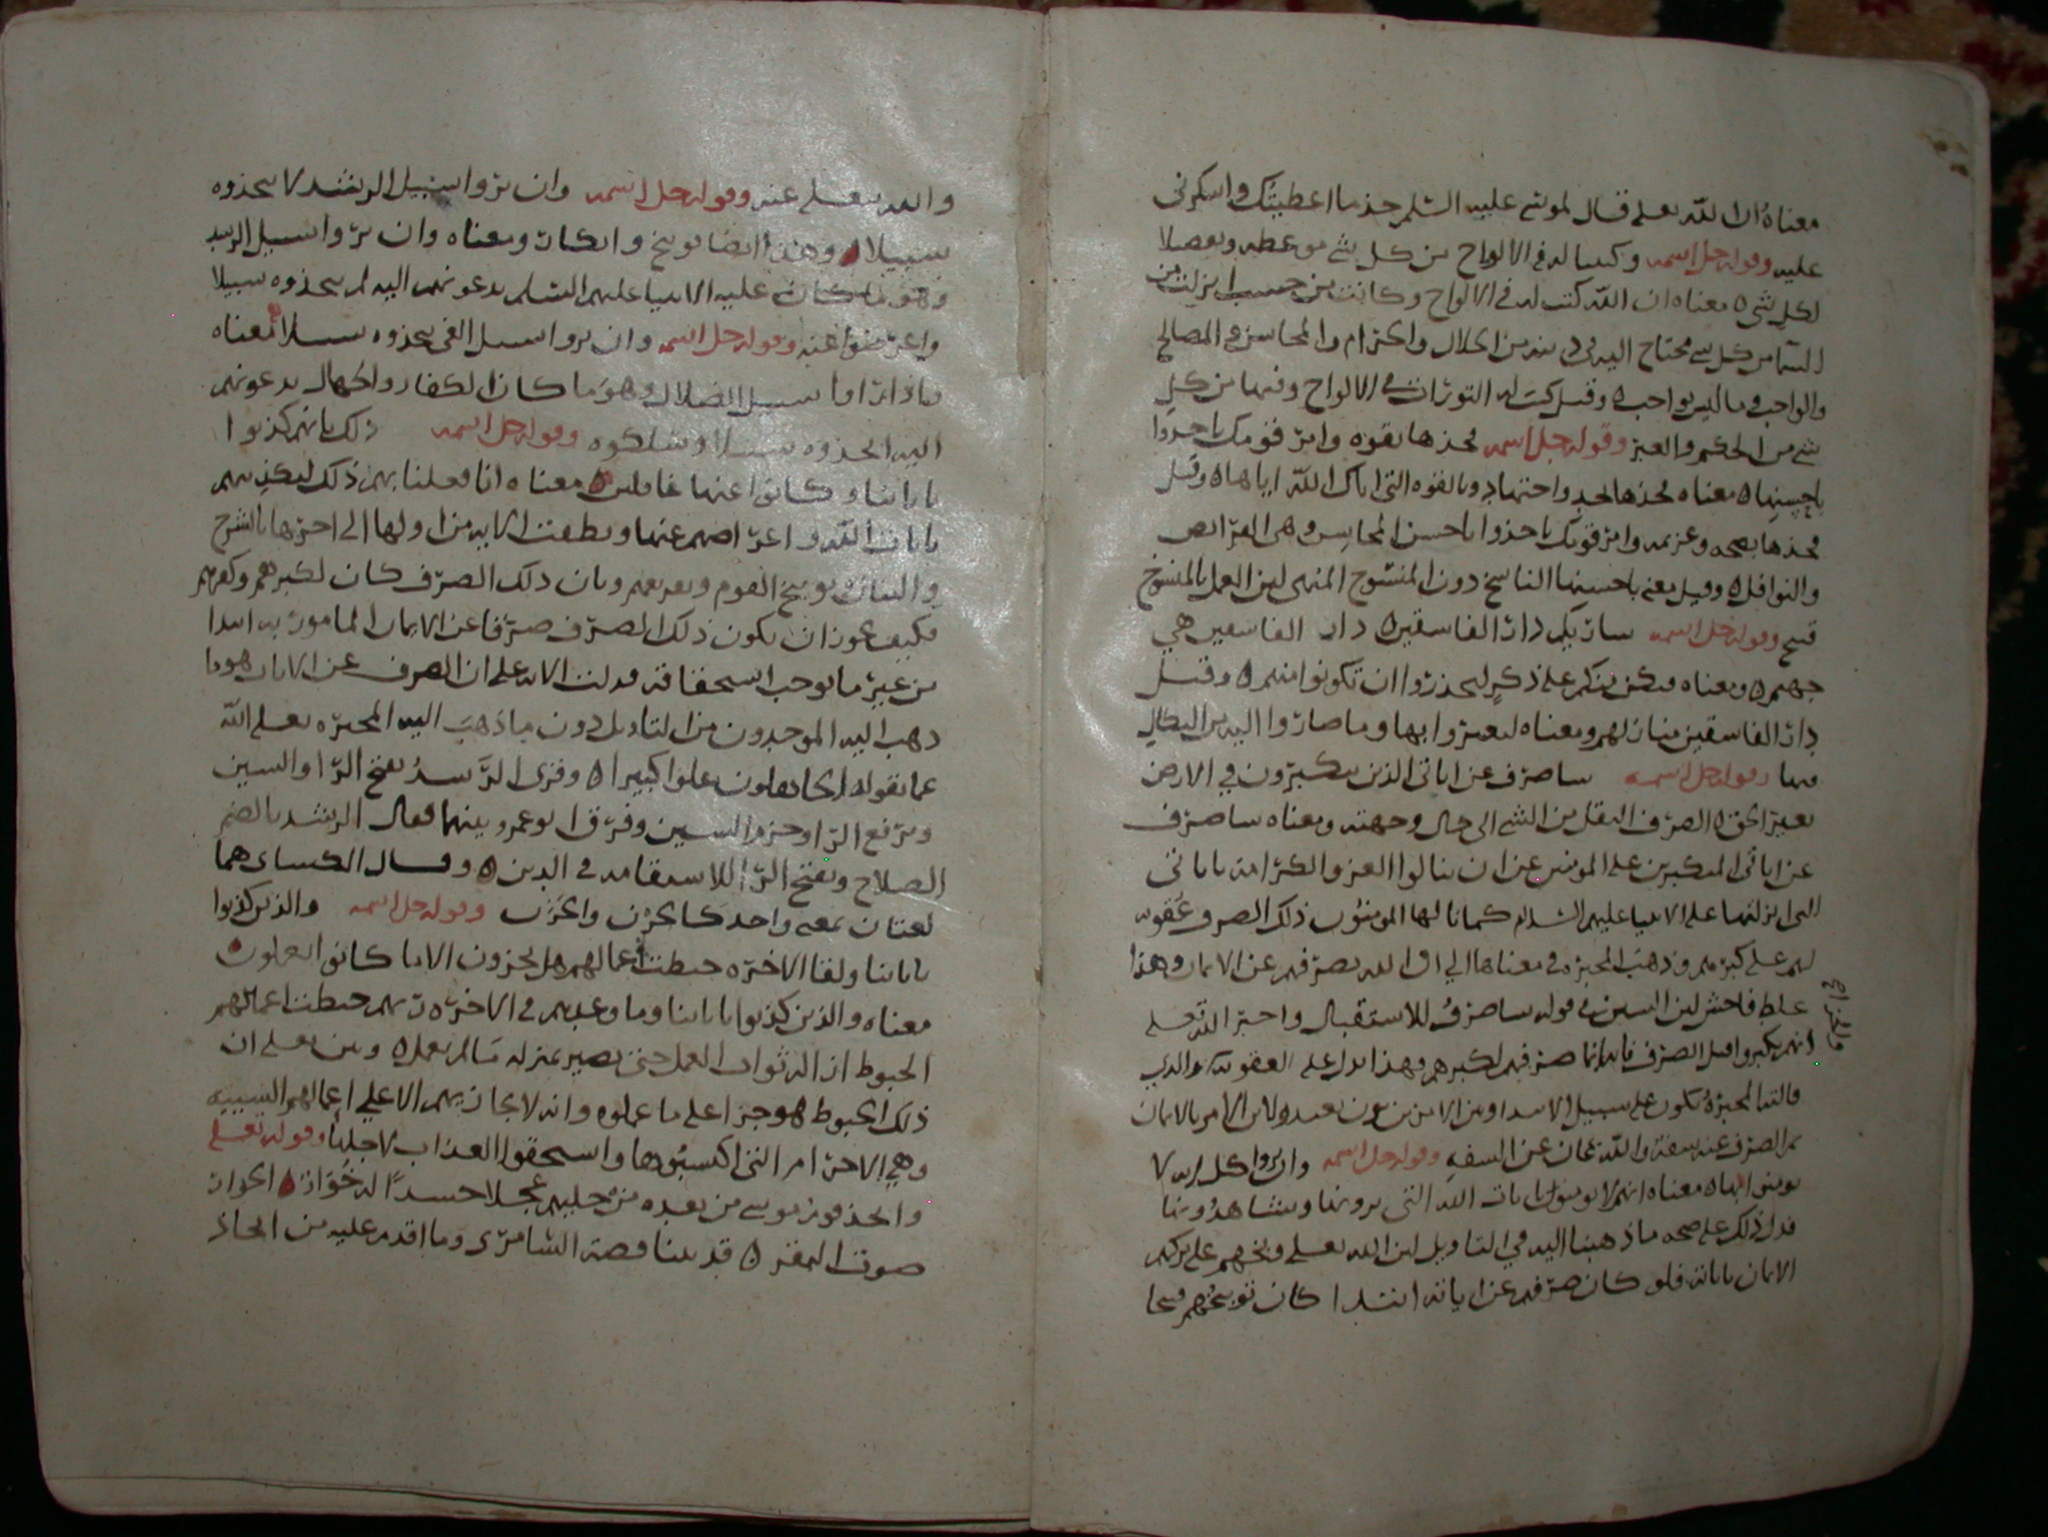 معناه ان الله تعلى قال لموسى عليه السلم خذ ما اعطيتك واشكرني
عليه وقوله جل اسمه وكتبنا له في الالواح من كل شي موعظه وتفصيلا
لكل شي ه معناه ان الله كتب له في الالواح وكانت من خشب انزلت من
السما من كل شي يحتاج اليه في دينه من الحلال والحرام والمحاسن والمصالح
والواجب وما ليس بواجب ه وقيل كتب له التورات في الالواح وفيها من كل
شي من الحكم والعبر وقوله جل اسمه فخذها بقوه وامر قومك ياخذوا
باحسنها ه معناه فخذها بجد واجتهاد وبالقوه التي اتاك الله اياها ه وقيل
فخذها بصحه وعزيمه وامر قومك ياخذوا باحسن المحاسن وهي الفرايض
والنوافل ه وقيل معنى باحسنها الناسخ دون المنسوخ المنهي لان العمل بالمنسوخ
قبيح وقوله جل اسمه ساريكم دار الفاسقين ه دار الفاسقين هي
جهنم ه ومعناه فيكن منكم على ذكر لتحذروا ان تكونوا منهم ه وقيل
دار الفاسقين منازلهم ومعناه لتعتبروا بها وما صاروا اليه من النكال
فيها وقوله جل اسمه ساصرف عن اياتي الذين يتكبرون في الارض
بغير الحق ه الصرف النقل من الشي الى حال وجهته ومعناه ساصرف
عن اياتي المتكبرين على المومنين عن ان ينالوا العز والكرامه باياتي
التي انزلتها على الانبيا عليهم السلام كما نالها المومنون ذلك الصرف عقوبه
لهم على كبرهم وذهبت المجبره في معناها الي ان الله يصرفهم عن الايمان وهذا
غلط فاحش لان السين في قوله ساصرف للاستقبال واخبر الله تعلى
انهم تكبروا قبل الصرف فانما صرفهم لكبرهم فهذا يدل على العقوبه والذي
قالته المجبره يكون على سبيل الابتدا ومن الامرين بون بعيد ولان الامر بالايمان
ثم الصرف عنه سفه والله تعالى عن السفه وقوله جل اسمه وان يروا كل ايه لا
يومنوا بها ه معناه انهم لا يومنون بايات الله التي يرونها ويشاهدونها
فدل ذلك على صحه ما ذهبنا اليه في التاويل لان الله تعلى وبخهم على تركهم
الايمان باياته فلو كان صرفهم عن اياته ابتدا كان توبيخهم قبيحا
والله تعلى عنه وقوله جل اسمه وان يروا سبيل الرشد لا يتخذوه
سبيلا ه وهذا ايضا توبيخ وانكار ومعناه وان يروا سبيل الرشد
وهو ما كان عليه الانبيا عليهم السلم يدعونهم اليه لم يتخذوه سبيلا
واعرضوا عنه وقوله جل اسمه وان يروا سبيل الغي يتخذوه سبيلا ه معناه
فاذا راوا سبيل الضلال وهو ما كان الكفار والجهال يدعونهم
اليه اتخذوه سبيلا وسلكوه وقوله جل اسمه ذلك بانهم كذبوا
باياتنا وكانوا عنها غافلين ه معناه انا فعلنا بهم ذلك لتكذيبهم
بايات الله واعراضهم عنها ونطقت الايه من اولها الى اخرها بالشرح
والبيان توبيخ القوم وتعريفهم وبان ذلك الصرف كان لكبرهم وكفرهم
فكيف يجوز ان يكون ذلك الصرف صرفا عن الايمان المامور به ابتدا
من غير ما يوجب استحقاقه فدلت الايه على ان الصرف عن الايات هو ما
ذهب اليه الموحدون من التاويل دون ما ذهبت اليه المجبره تعلى الله
عما يقوله الجاهلون علوا كبيرا ه وقرى الرشد بفتح الرا والسين
وبرفع الرا وجزم السين وفرق ابو عمرو بينهما فقال الرشد بالضم
الصلاح وبفتح الرا الاستقامه في الدين ه وقال الكساى هما
لغتان بمعنى واحد كالحزن والحزن وقوله جل اسمه والذين كذبوا
باياتنا ولقا الاخره حبطت اعمالهم هل يجزون الا ما كانوا يعملون ه
معناه والذين كذبوا باياتنا وما وعدهم في الاخره ربهم حبطت اعمالهم
الحبوط ازاله ثواب العمل حتى يصير بمنزله ما لم يعمل ه وبين تعلى ان
ذلك الحبوط هو جزا على ما عملوه وانه لا يجازيهم الا على اعمالهم السيئه
وهي الاجرام التي اكتسبوها واستحقوا العذاب لاجلها وقوله تعلى
واتخذ قوم موسى من بعده من حليهم عجلا جسدا له خوار ه الخوار
صوت البقر ه قد بينا قصه السامري وما اقدم عليه من اتخاذ